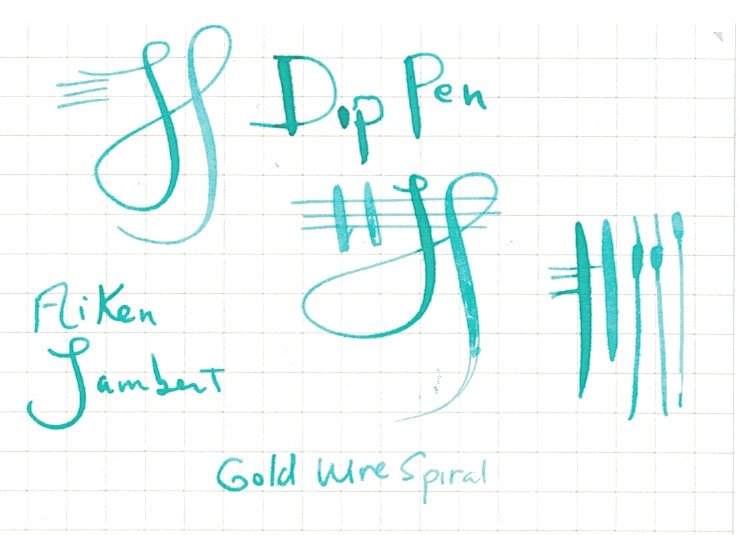 Dip Pen
Aiken
Lambert
Gold Wire Spiral